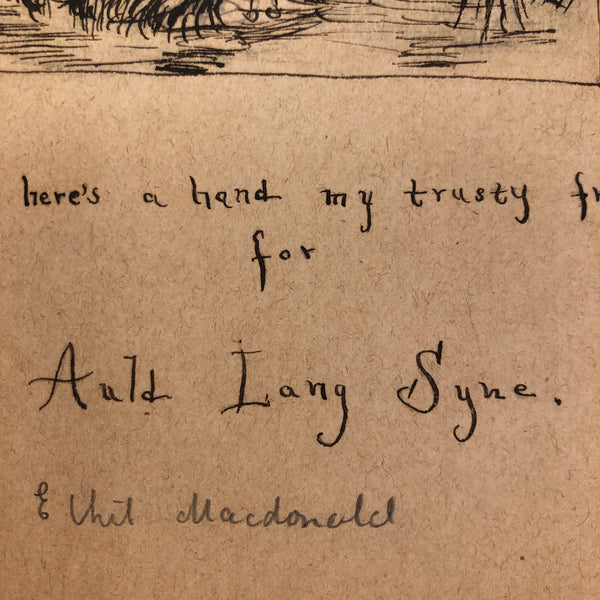 here's a hand my trusty fr
for
Auld Lang Syne.
Macdonald